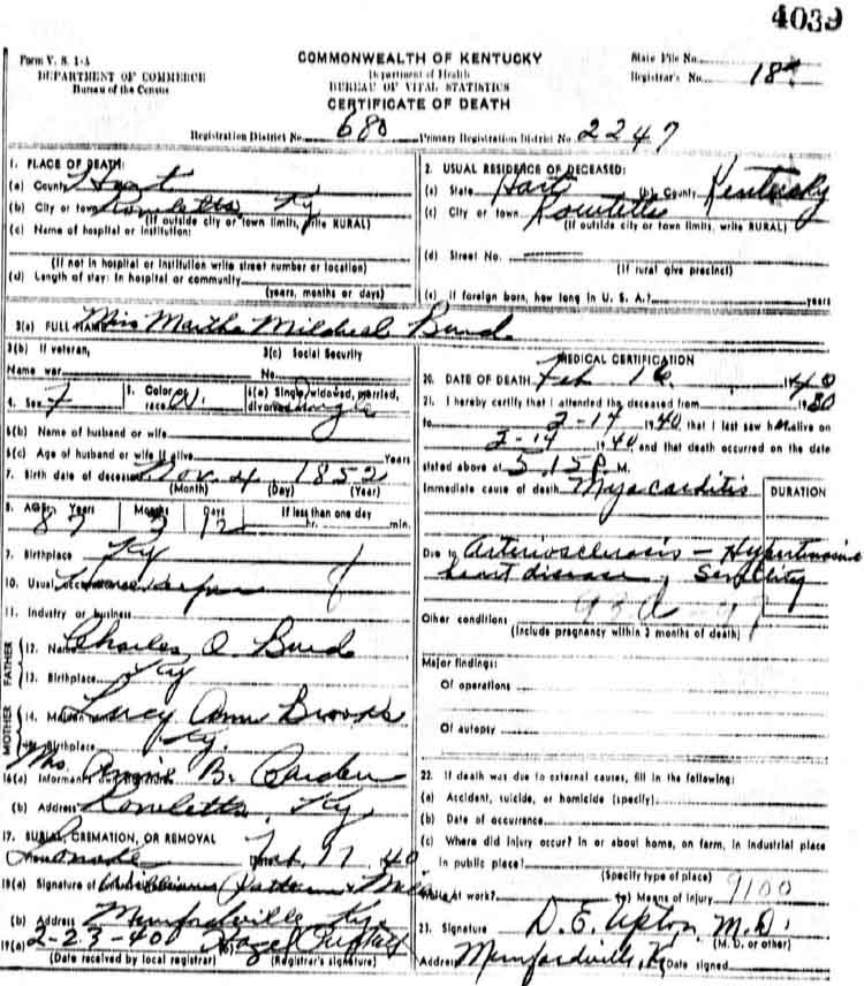 4039
Form V. S. 1-A
DEPARTMENT OF COMMERCE
Bureau of the Census
COMMONWEALTH OF KENTUCKY
Department of Health
BUREAU OF VITAL STATISTICS
CERTIFICATE OF DEATH
State File No.
Registrar's No. 18
Registration District No. 680 Primary Registration District No. 2247
1. PLACE OF DEATH:
(a) County Hart
(b) City or town Ky
(If outside city or town limits, write RURAL)
(c) Name of hospital or institution:
(If not in hospital or institution write street number or location)
(d) Length of stay: In hospital or community
(years, months or days)
2. USUAL RESIDENCE OF DECEASED:
(a) State Hart (b) County Kentucky
(c) City or town
(If outside city or town limits, write RURAL)
(d) Street No.
(If rural give precinct)
(e) If foreign born, how long in U. S. A.? years
3(a) FULL NAME Miss Martha Mildred Burd
3(b) If veteran,
Name war
3(c) Social Security
No.
4. Sex F
5. Color or race W.
6(a) Single, widowed, married, divorced Single
6(b) Name of husband or wife
6(c) Age of husband or wife if alive Years
7. Birth date of deceased Nov. 4, 1852
(Month) (Day) (Year)
8. AGE: Years Months Days If less than one day
87 3 12 hr. min.
9. Birthplace Ky
10. Usual occupation
11. Industry or business
FATHER
12. Name Charles O Burd
13. Birthplace Ky
MOTHER
14. Maiden Lucy Ann Brooks
15. Birthplace Ky.
16(a) Informant Mrs. Annie B. Carden
(b) Address Ky
17. BURIAL, CREMATION, OR REMOVAL
Feb. 17 40
18(a) Signature of
(b) Address Munfordville, Ky.
19(a) 2-23-40 Hazel
(Date received by local registrar) (Registrar's signature)
MEDICAL CERTIFICATION
20. DATE OF DEATH Feb 16 1940
21. I hereby certify that I attended the deceased from 19
to 2-14 1940 that I last saw h alive on
2-14 1940 and that death occurred on the date
stated above at 5.15 P. M.
Immediate cause of death Myacarditis
DURATION
Due to Arteriosclerosis - Hypertensive
heart disease, Senility
Other conditions
(Include pregnancy within 3 months of death)
Major findings:
Of operations
Of autopsy
22. If death was due to external causes, fill in the following:
(a) Accident, suicide, or homicide (specify)
(b) Date of occurrence
(c) Where did injury occur? In or about home, on farm, in industrial place
in public place?
(Specify type of place)
While at work? (e) Means of injury 9100
23. Signature D. E. Upton, M.D.
(M. D. or other)
Address Munfordville, Ky Date signed